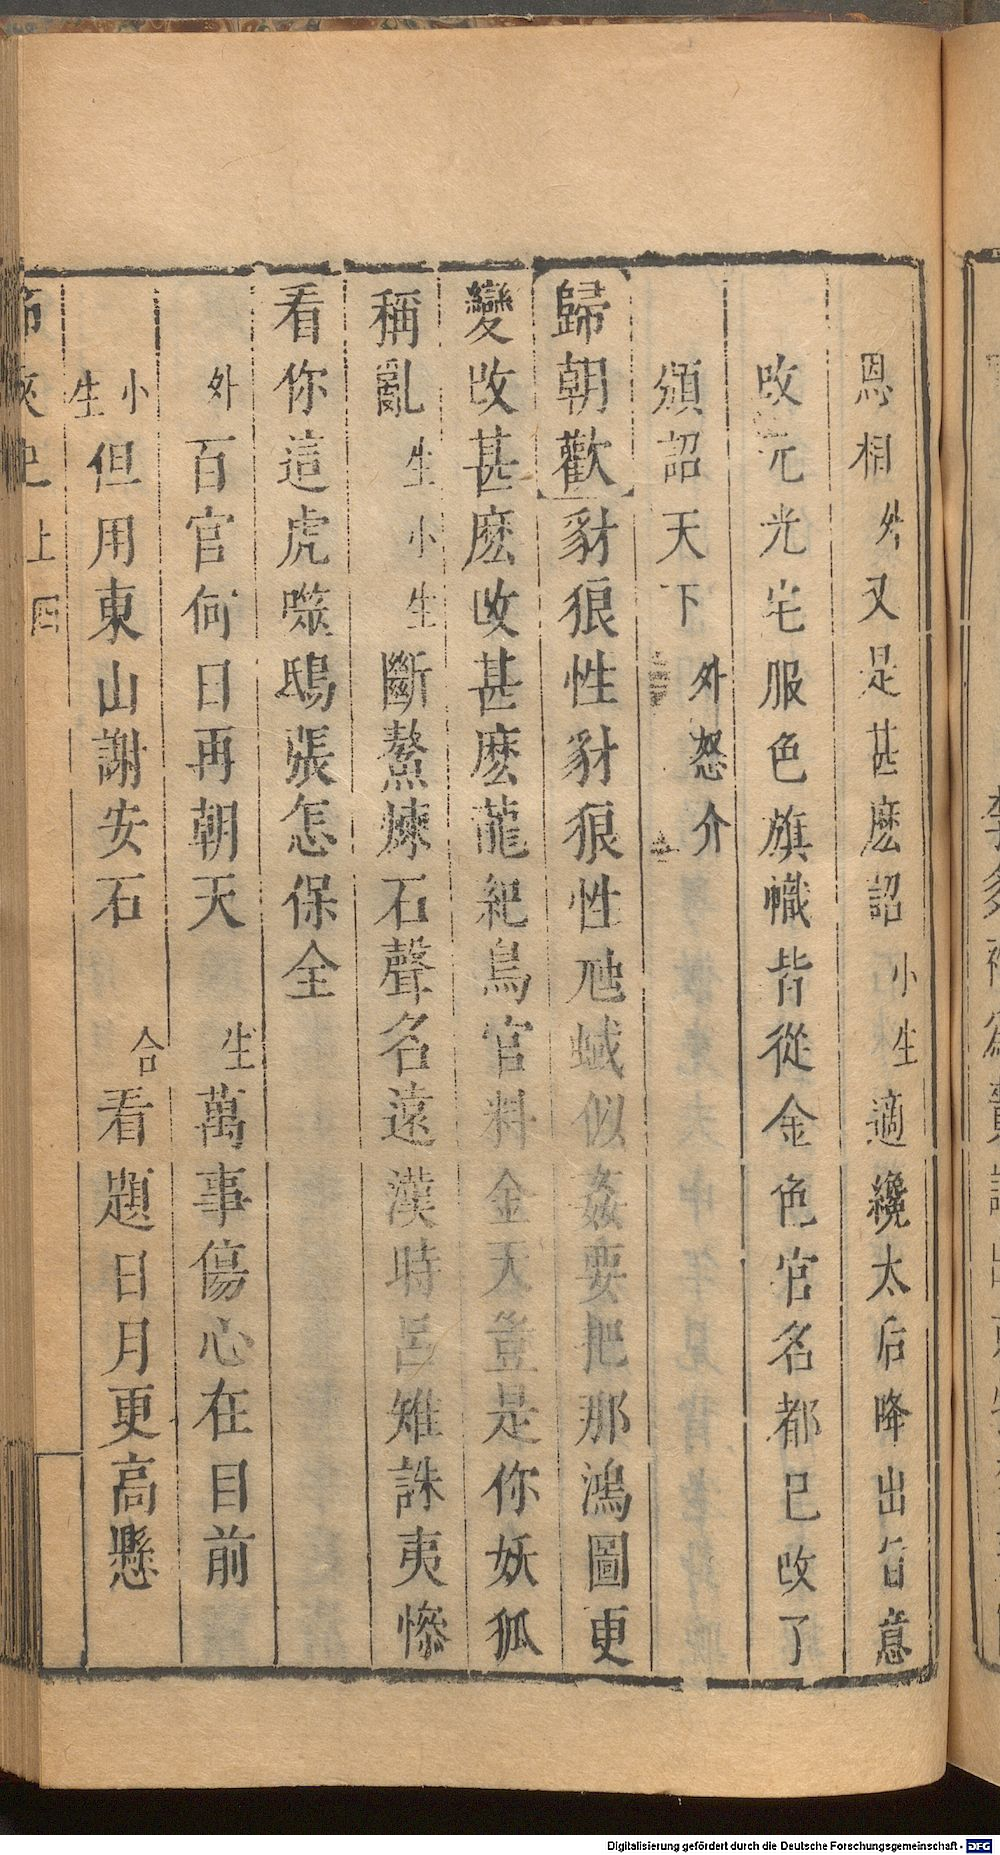 恩相外又是甚麽詔小生適纔太后降出旨意
改元光宅服色旗幟皆從金色官名都已改了
頒詔天下外怒介
歸朝歡豺狼性豺狼性虺蜮似姦要把那鴻圖更
變改甚麽改甚麽龍紀鳥官料金天豈是你妖狐
稱亂生小生斷鰲煉石聲名遠漢時呂雉誅夷慘
看你這虎噬鴟張怎保全
外百官何日再朝天生萬事傷心在目前
小生但用東山謝安石合看題日月更高懸
上四
Digitalisierung gefördert durch die Deutsche Forschungsgemeinschaft - DFG